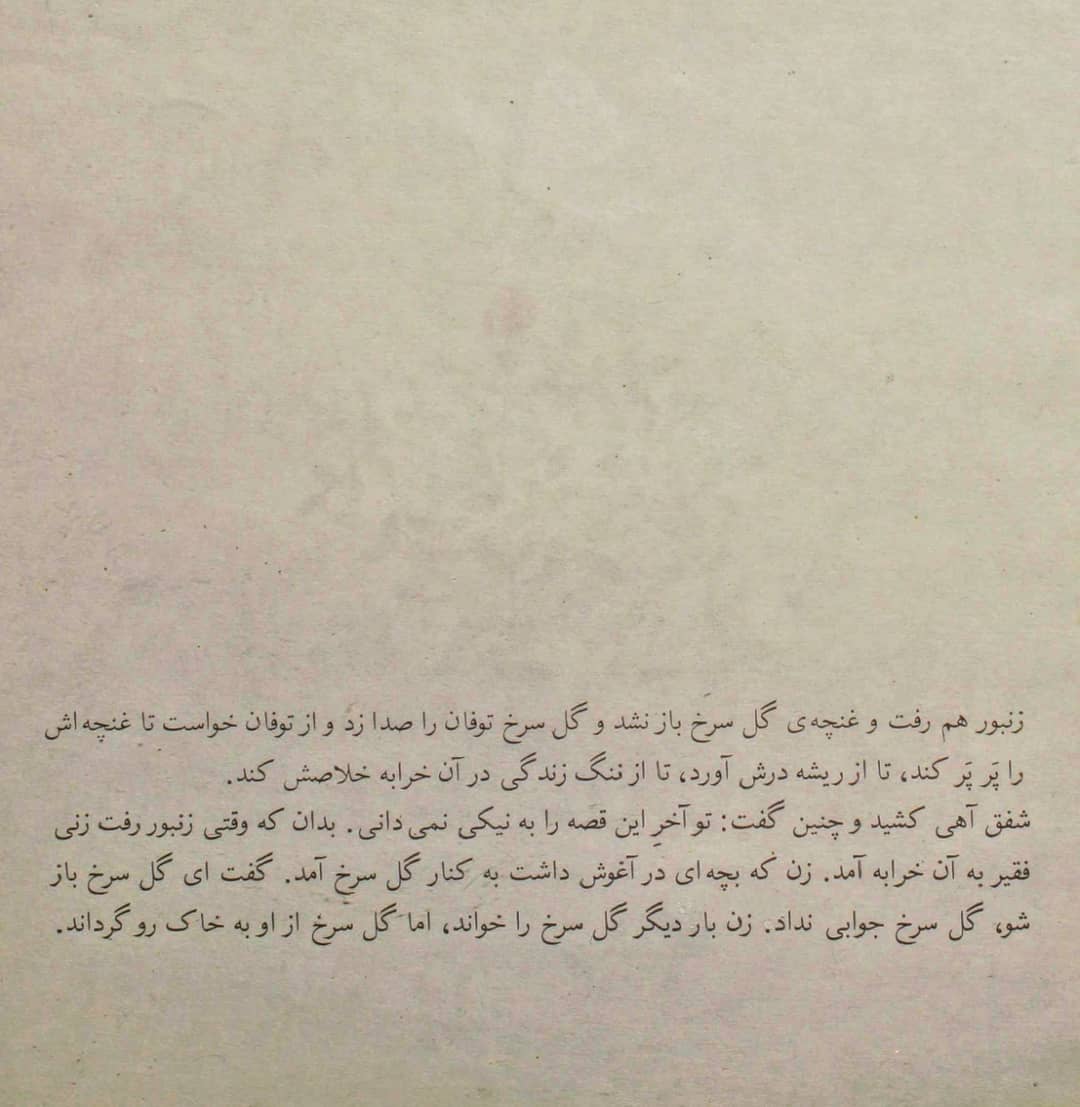 زنبور هم رفت و غنچه‌ی گل سرخ باز نشد و گل سرخ توفان را صدا زد و از توفان خواست تا غنچه‌اش
را پَر پَر کند، تا از ریشه درش آورد، تا از ننگ زندگی در آن خرابه خلاصش کند.
شفق آهی کشید و چنین گفت: تو آخرِ این قصه را به نیکی نمی‌دانی. بدان که وقتی زنبور رفت زنی
فقیر به آن خرابه آمد. زن که بچه‌ای در آغوش داشت به کنار گل سرخ آمد. گفت ای گل سرخ باز
شو، گل سرخ جوابی نداد. زن بار دیگر گل سرخ را خواند، اما گل سرخ از او به خاک رو گرداند.